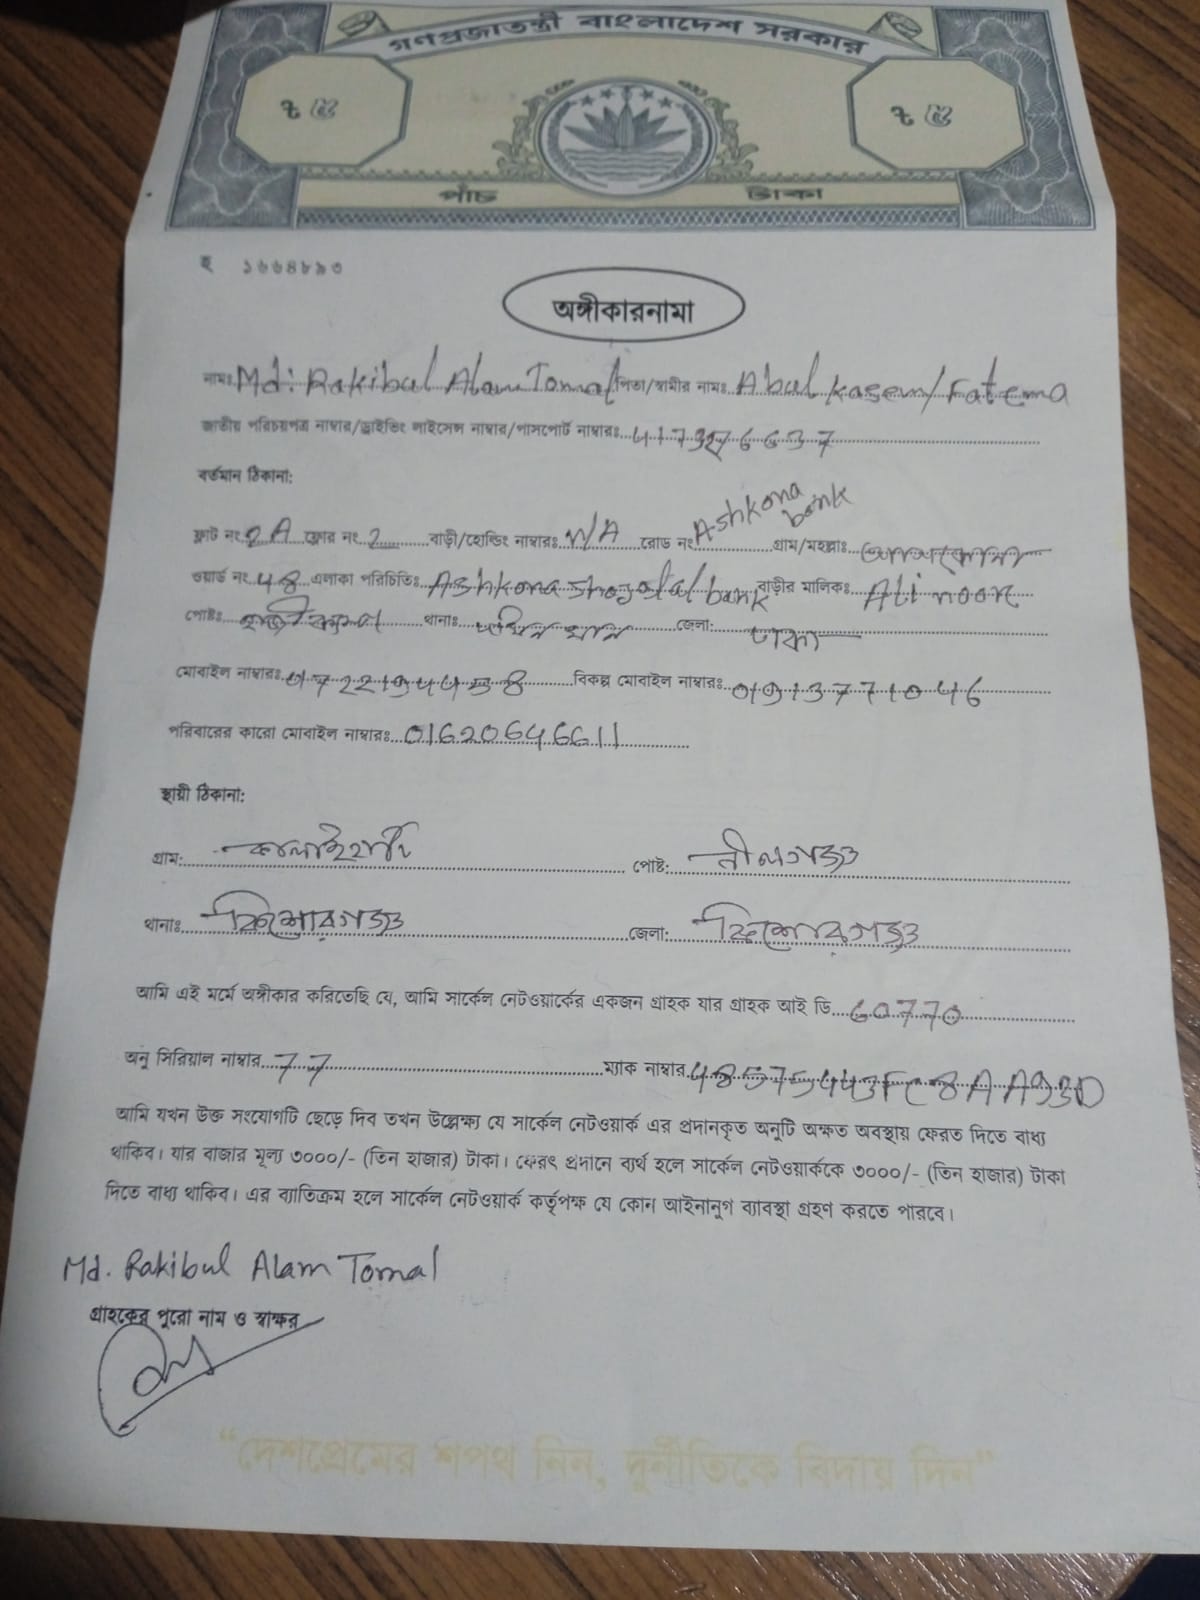 গণপ্রজাতন্ত্রী বাংলাদেশ সরকার
৳ ৫ ৳ ৫
পাঁচ টাকা
ছ ১৬৬৪৮৯৩
অঙ্গীকারনামা
নামঃ Md: Rakibul Alam Tomal পিতা/স্বামীর নামঃ Abul Kasem/Fatema
জাতীয় পরিচয়পত্র নাম্বার/ড্রাইভিং লাইসেন্স নাম্বার/পাসপোর্ট নাম্বারঃ
বর্তমান ঠিকানা:
ফ্লাট নং 2A ফ্লোর নং 2 বাড়ী/হোল্ডিং নাম্বারঃ N/A রোড নং Ashkona bank গ্রাম/মহল্লাঃ আশকোনা
ওয়ার্ড নং 48 এলাকা পরিচিতিঃ Ashkona bank বাড়ীর মালিকঃ Ali noor
পোষ্টঃ থানাঃ দক্ষিন খান জেলা: ঢাকা
মোবাইল নাম্বারঃ বিকল্প মোবাইল নাম্বারঃ 01913771046
পরিবারের কারো মোবাইল নাম্বারঃ 01620646611
স্থায়ী ঠিকানা:
গ্রাম: পোষ্ট: নীলগঞ্জ
থানাঃ কিশোরগঞ্জ জেলা: কিশোরগঞ্জ
আমি এই মর্মে অঙ্গীকার করিতেছি যে, আমি সার্কেল নেটওয়ার্কের একজন গ্রাহক যার গ্রাহক আই ডি 60770
অনু সিরিয়াল নাম্বার 77 ম্যাক নাম্বার 48575443FC8AA93D
আমি যখন উক্ত সংযোগটি ছেড়ে দিব তখন উল্লেক্ষ্য যে সার্কেল নেটওয়ার্ক এর প্রদানকৃত অনুটি অক্ষত অবস্থায় ফেরত দিতে বাধ্য
থাকিব। যার বাজার মূল্য ৩০০০/- (তিন হাজার) টাকা। ফেরৎ প্রদানে ব্যর্থ হলে সার্কেল নেটওয়ার্ককে ৩০০০/- (তিন হাজার) টাকা
দিতে বাধ্য থাকিব। এর ব্যাতিক্রম হলে সার্কেল নেটওয়ার্ক কর্তৃপক্ষ যে কোন আইনানুগ ব্যাবস্থা গ্রহণ করতে পারবে।
Md. Rakibul Alam Tomal
গ্রাহকের পুরো নাম ও স্বাক্ষর
“দেশপ্রেমের শপথ নিন, দুর্নীতিকে বিদায় দিন”